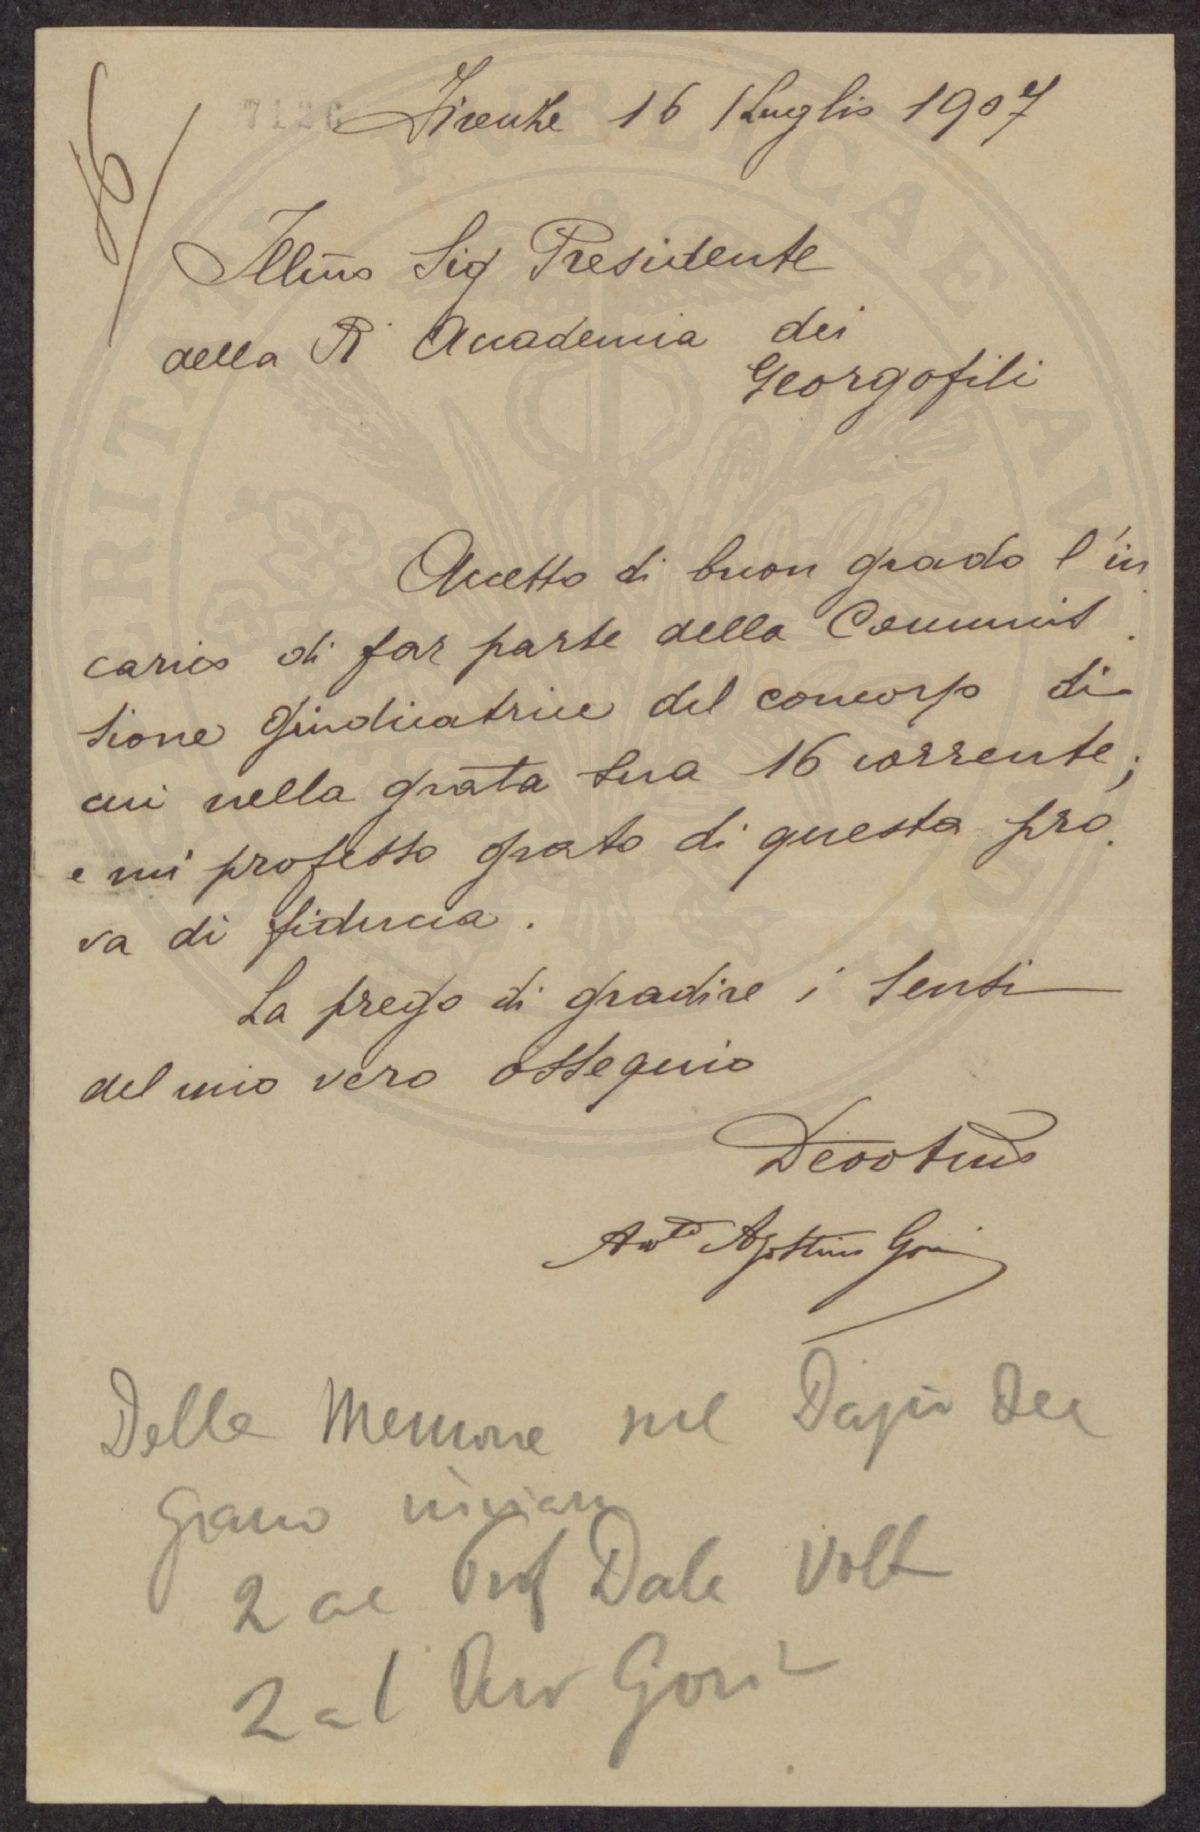 7126
Firenze 16 Luglio 1907
Illmo Sig Presidente
della R Accademia dei
Georgofili
Accetto di buon grado l'in
carico di far parte della Commis
sione giudicatrice del concorso di
cui nella grata sua 16 corrente;
e mi professo grato di questa pro
va di fiducia.
La prego di gradire i sensi
del mio vero ossequio
Devotmo
Avvto Agostino Gori
Delle Memorie sul Dazio del
grano inviare
2 al Prof Dalla Volta
2 al Avv Gori